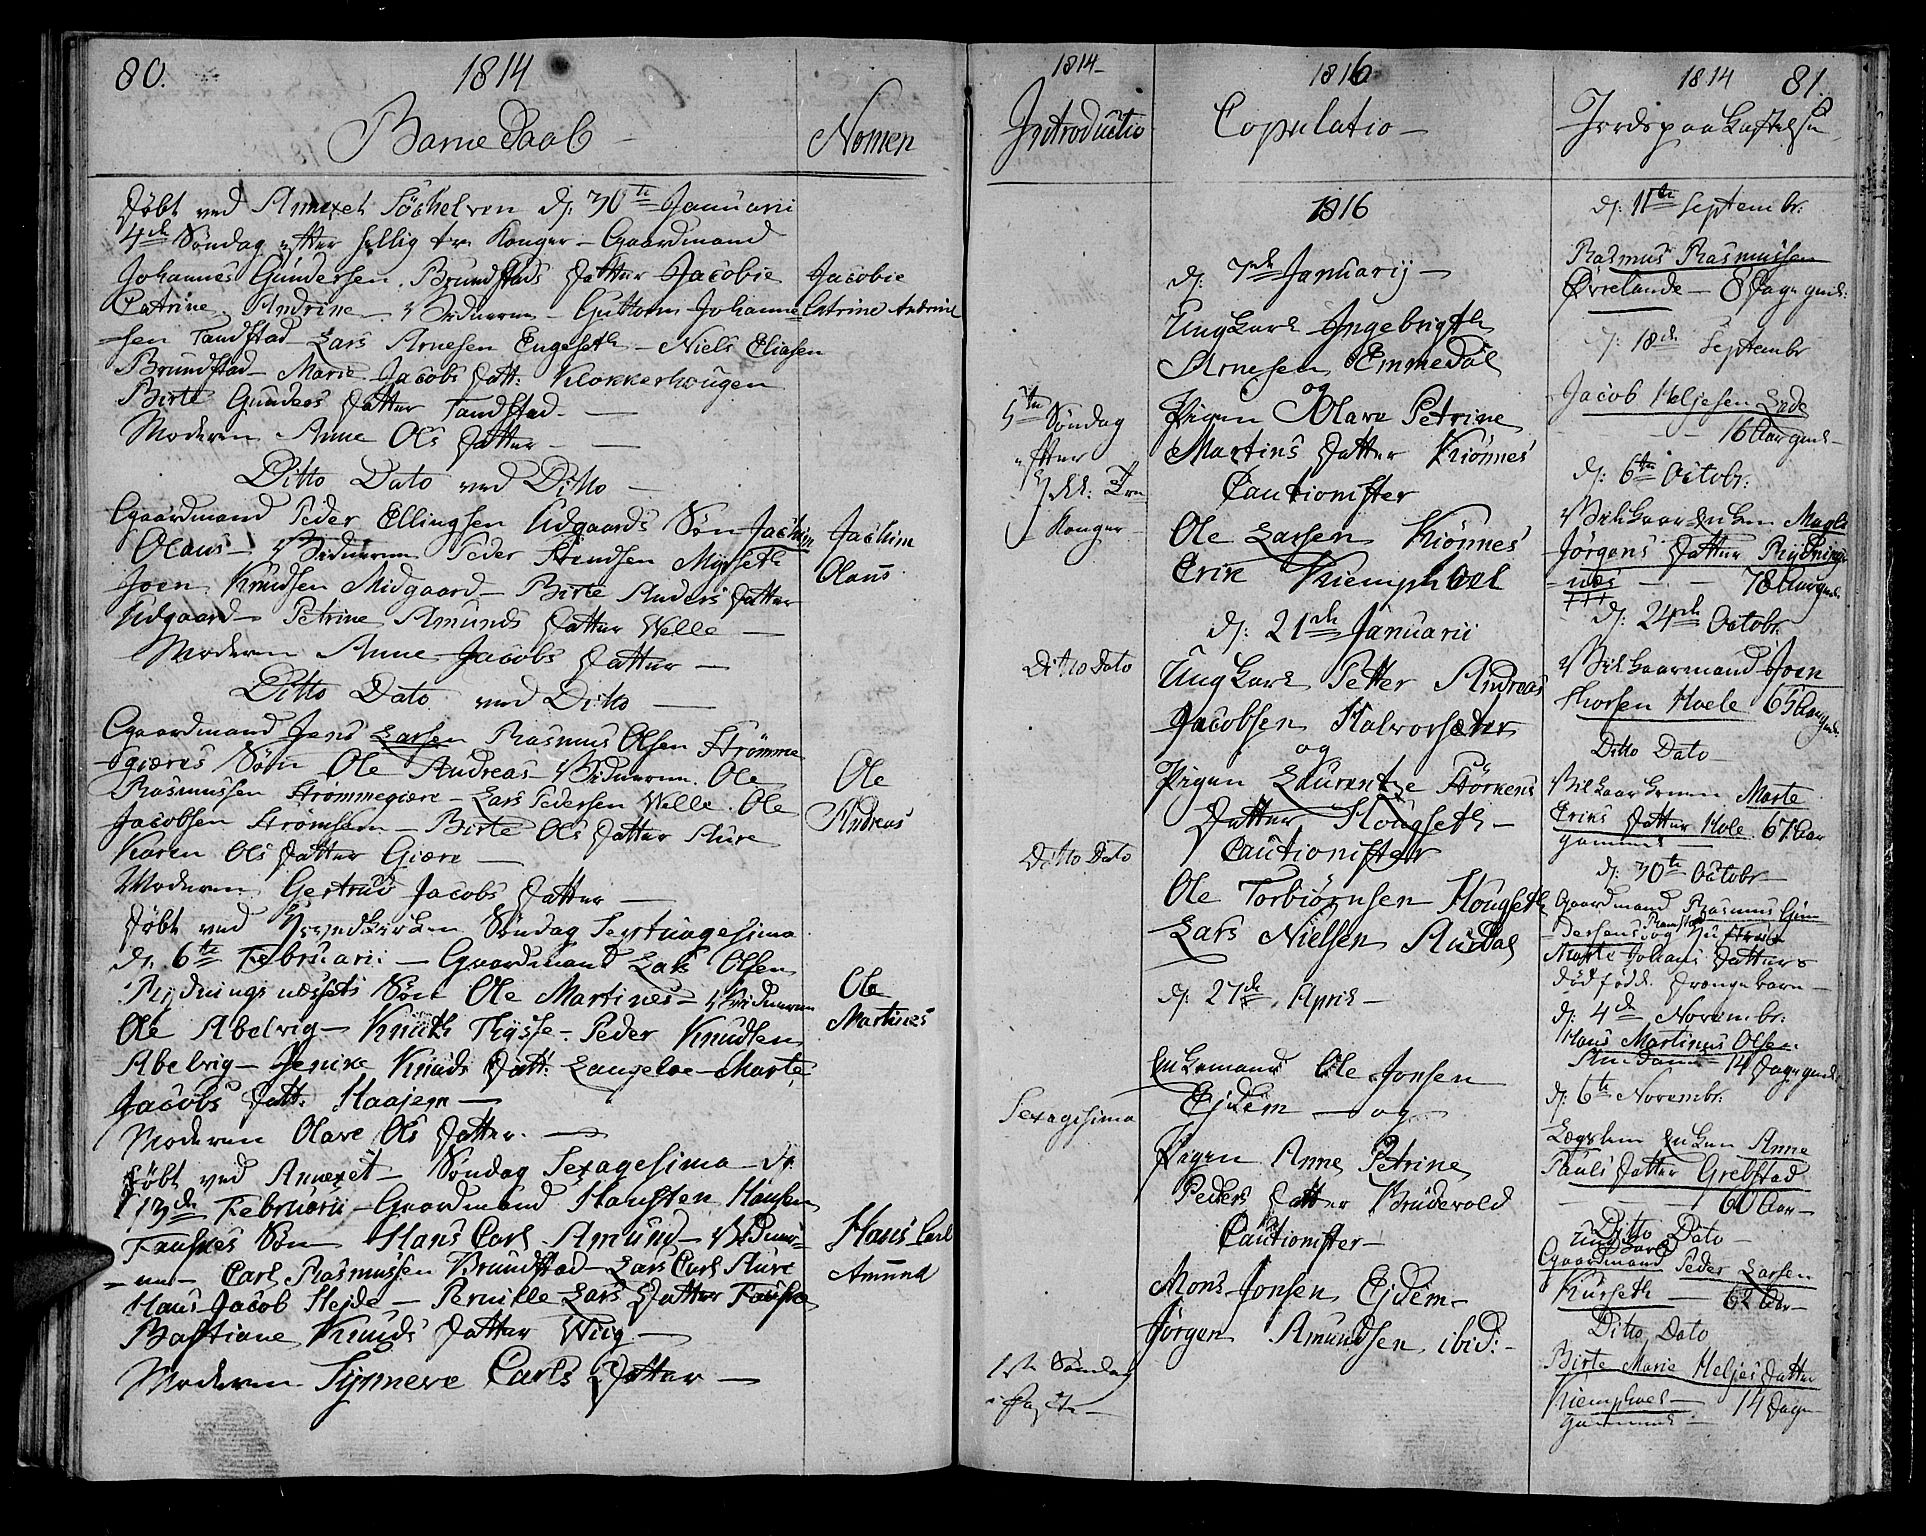 80. 1814
Barne Daab — Nomen
Døbt ved Annexet Söchelven d: 30te Januarii
4de Söndag efter hellig tre Konger — Gaardmand
Johannes Gundersen Brundstads Datter Jacobie
Catrine Andrine — Vidnerne — Guttorm Johanne=
sen Tandstad — Lars Arnesen Engeseth — Niels Eliasen
Brundstad — Marie Jacobs Datt: Klokkerhougen
Birte Gunders Datter Tandstad —
Moderen Anne Ols Datter —
Jacobie
Catrine Andrine
Ditto Dato ved Ditto —
Gaardmand Peder Ellingsen Udgaards Søn Jachim
Olaus — Vidnerne Peder Knudsen Myrseth
Joen Knudsen Midgaard — Birte Anders Datter
Udgaard — Petrine Amunds Datter Welle —
Moderen Anne Jacobs Datter —
Jachim
Olaus
Ditto Dato ved Ditto —
Gaardmand Jens Larsen Rasmus Olsen Strömme
giæres Sön Ole Andreas — Vidnerne Ole
Rasmussen Strömmegiære — Lars Pedersen Welle. Ole
Jacobsen Strömsem — Birte Ols Datter Aure
Karen Ols Datter Giære —
Moderen Gertrud Jacobs Datter —
Ole
Andreas
Døbt ved Hovedkirken Søndag Septuagesima
d: 6te Februarii — Gaardmand Lars Olsen
Rydningsnæssets Søn Ole Martines — Vidnerne
Ole Abelvig — Knuth Thysse — Peder Knudsen
Abelvig — Jenike Knuds Datt: Langeloe — Marte
Jacobs Datt: Haajem —
Moderen Olave Ols Datter —
Ole
Martines
Døbt ved Annexet — Søndag Sexagesima d:
13de Februarii — Gaardmand Hansten Hansen
Fauskes Søn Hans Carl Amund — Vidner=
=ne — Carl Rasmussen Brundstad — Lars Carls Aure
Hans Jacob Hejde — Pernille Lars Datter Fauske
Bastiane Knuds Datter Wiig —
Moderen Synneve Carls Datter —
Hans Carl
Amund
1814
Introductio
5te Söndag
efter
hell: Tre
Konger
Ditto Dato
Ditto Dato
Sexagesima
1ste Søndag
i Faste —
1816
Copulatio —
1816
d: 7de Januarij —
Ungkarl Ingebrigth
Arnesen Emmedal
og
Pigen Olave Petrine
Martins Datter Kiönnes
Cautionister
Ole Larsen Kiönnes
Erik Kiemphoel
d: 21de Januarii
Ungkarl Petter Andreas
Jacobsen Halvorsæter
og
Pigen Laurentze Störkers
Datter Hougseth —
Cautionister
Ole Torbiörnsen Hougseth
Lars Nielsen Ausdal
d: 27de April —
Enkemand Ole Jonsen
Ejdem — og —
Pigen Anne Petrine
Peders Datter Brudevold
Cautionister —
Mons Jonsen Ejdem —
Jörgen Amundsen ibid: —
1814 81.
Jordspaakastelse
d: 11te Septembr:
Rasmus Rasmussen
Ørrelande — 8 Dage gml:
d: 18de Septembr
Jacob Heljesen Lede
16 Aar gml —
d: 6te Octobr:
Vilkaar Enken Magle
Jörgens Datter Rydnings
næs — 78 Aar gml
d: 24de Octobr
Vilkaarmand Joen
Thorsen Hoele 65 Aar gml
Ditto Dato —
Vilkaar konen Marte
Eriks Datter Hole 67 Aar
gammel
d: 30te Octobr —
Gaardmand Rasmus Gun
dersens Ramstad og Hustrue
Marte Johans Datters
dødfødde Drengebarn —
d: 4de Novembr:
Hans Martinus Olsen
14 Dage gml:
d: 6te Novembr:
Lægslem Enken Anne
Pauls Datter Grebstad
60 Aar —
Ditto Dato —
Ungkarl
Gaardmand Peder Larsen
Kurseth — 62 Aar —
Ditto Dato
Birte Marie Heljes Datter
Kiemphoel — 14 Dage
gammel —